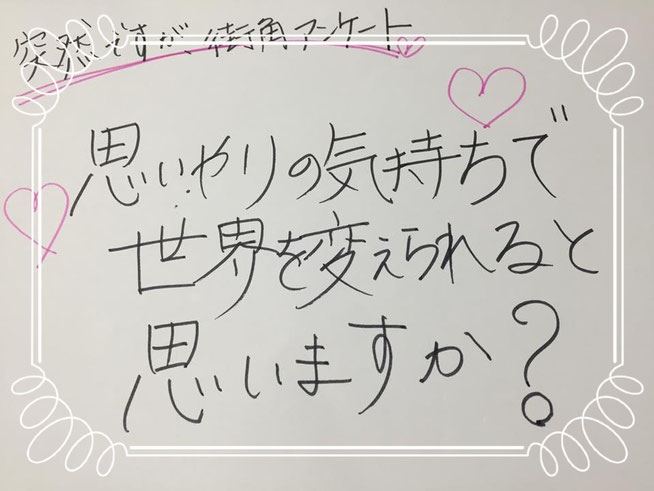 突然ですが、街角アンケート
思いやりの気持ちで
世界を変えられると
思いますか？